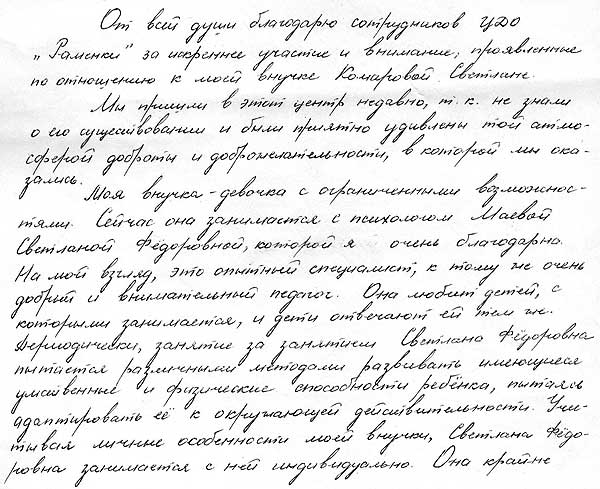 От всей души благодарю сотрудников ЦДО
„Раменки" за искреннее участие и внимание, проявленные
по отношению к моей внучке Комаровой Светлане.
Мы пришли в этот центр недавно, т. к. не знали
о его существовании и были приятно удивлены той атмо-
сферой доброты и доброжелательности, в которой мы ока-
зались.
Моя внучка - девочка с ограниченными возможнос-
тями. Сейчас она занимается с психологом Маевой
Светланой Фёдоровной, которой я очень благодарна.
На мой взгляд, это опытный специалист, к тому же очень
добрый и внимательный педагог. Она любит детей, с
которыми занимается, и дети отвечают ей тем же.
Периодически, занятие за занятием Светлана Фёдоровна
пытается различными методами развивать имеющиеся
умственные и физические способности ребёнка, пытаясь
адаптировать её к окружающей действительности. Учи-
тывая личные особенности моей внучки, Светлана Фёдо-
ровна занимается с ней индивидуально. Она крайне